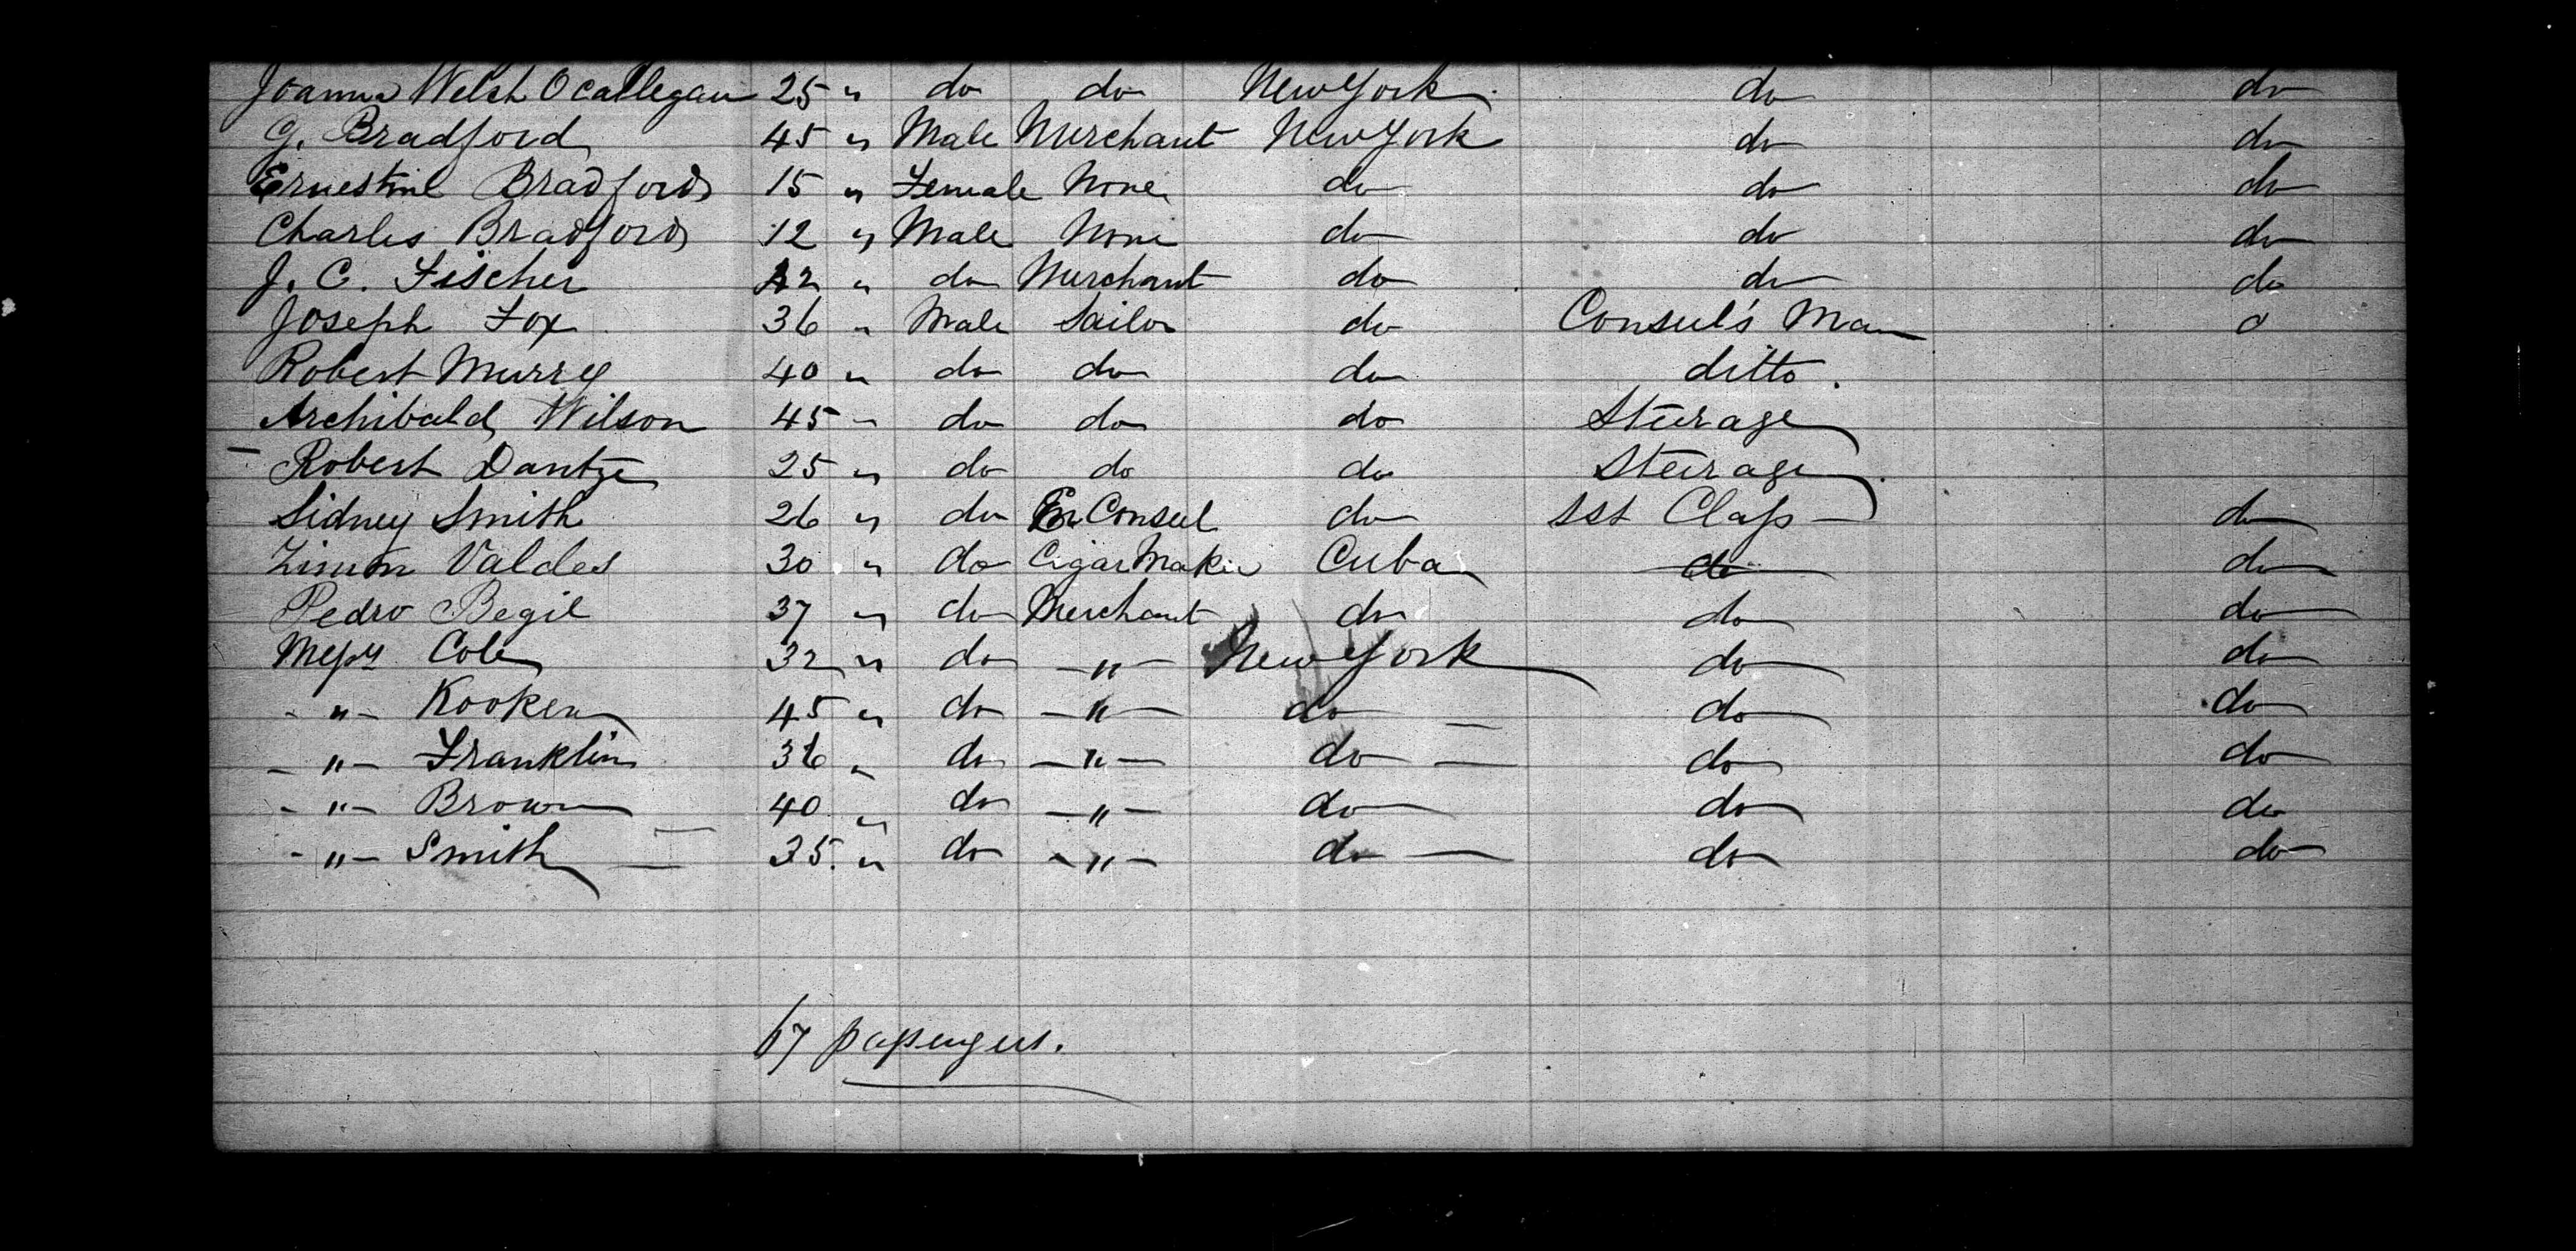 Joanna Welch Ocallegan 25 " do do New York do do
G. Bradford 45 " Male Merchant New York do do
Ernestine Bradford 15 " Female None do do do
Charles Bradford 12 " Male None do do do
J. C. Fischer 42 " do Merchant do do do
Joseph Fox 36 " Male Sailor do Consul's Man d
Robert Murrey 40 " do do do ditto.
Archibald Wilson 45 " do do do Steerage
Robert Dantze 25 " do do do Steerage
Sidney Smith 26 " do Consul do 1st Class do
Valdes 30 " do Cigar Maker Cuba do do
Pedro Begil 37 " do Merchant do do do
Messrs Cole 32 " do " New York do do
" Kooken 45 " do " do do do
" Franklin 36 " do " do do do
" Brown 40 " do " do do do
" Smith 35. " do " do do do
67 passengers.